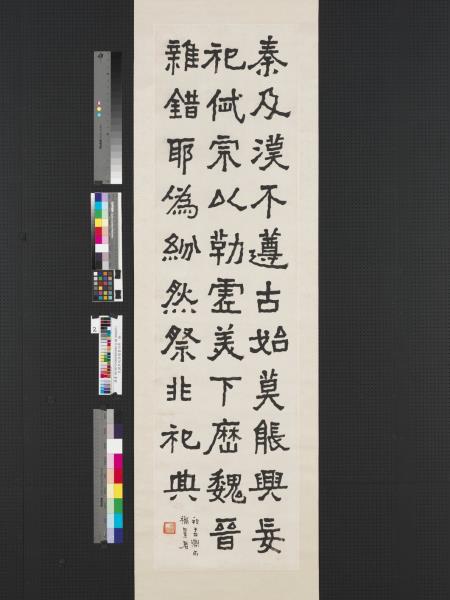 秦及漢不遵古始莫能興妄
祀岱宗以勒虛美下歷魏晉
雜錯耶偽紛然祭非祀典